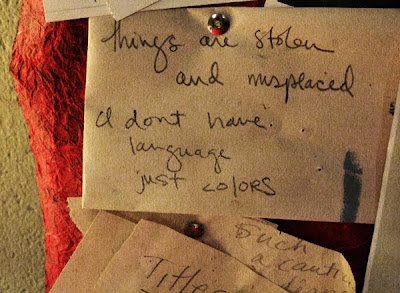 Things are stolen
and misplaced
I dont have
language
just colors
Such
a
Title